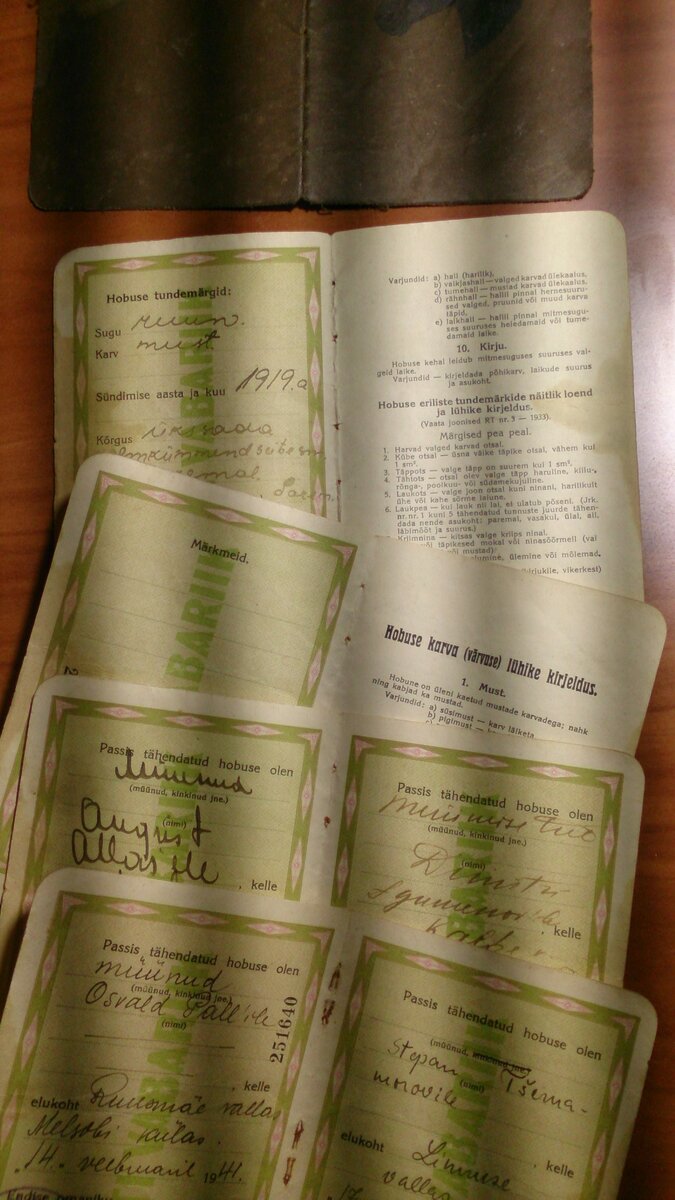 Hobuse tundemärgid:
Sugu ruun.
Karv must.
Sündimise aasta ja kuu 1919.a
Kõrgus ükssada
BARII
Varjundid: a) hall (harilik),
b) valkjashall — valged karvad ülekaalus,
c) tumehall — mustad karvad ülekaalus,
d) rähnhall — hallil pinnal hernesuuru-
sed valged, pruunid või muud karva
täpid,
e) laikhall — hallil pinnal mitmesugu-
ses suuruses heledamaid või tume-
damaid laike.
10. Kirju.
Hobuse kehal leidub mitmesuguses suuruses val-
geid laike.
Varjundid — kirjeldada põhikarv, laikude suurus
ja asukoht.
Hobuse eriliste tundemärkide näitlik loend
ja lühike kirjeldus.
(Vaata joonised RT nr. 3 — 1933).
Märgised pea peal.
1. Harvad valged karvad otsal.
2. Kübe otsal — üsna väike täpike otsal, vähem kui
1 sm².
3. Täppots — valge täpp on suurem kui 1 sm².
4. Tähtots — otsal olev valge täpp haruline, killu-,
rõnga-, poolkuu- või südamekujuline.
5. Laukots — valge joon otsal kuni ninani, harilikult
ühe või kahe sõrme laiune.
6. Laukpea — kui lauk nii lai, et ulatub põseni. (Jrk.
nr. nr. 1 kuni 5 tähendatud tunnuste juurde tähen-
dada nende asukoht: paremal, vasakul, ülal, all,
läbimõõt ja suurus.)
— kitsas valge kriips ninal.
täpikesed mokal või ninasõõrmeil (val
või mustad):
ülemine või mõlemad.
vikerkest)
Märkmeid.
BARII
Hobuse karva (värvuse) lühike kirjeldus.
1. Must.
Hobune on üleni kaetud mustade karvadega; nahk
ning kabjad ka mustad.
Varjundid: a) süsimust — karv läiketa
b) pigimust —
Passis tähendatud hobuse olen
müünud
(müünud, kinkinud jne.)
August
(nimi)
, kelle
Passis tähendatud hobuse olen
(müünud, kinkinud jne.)
(nimi)
, kelle
Passis tähendatud hobuse olen
müünud
(müünud, kinkinud jne.)
Osvald
(nimi)
251640
, kelle
elukoht Ruusmäe vallas
külas.
"14." veebruaril 1941.
Passis tähendatud hobuse olen
(müünud, kinkinud jne.)
Stepan Tšerna-
(nimi)
morovile
, kelle
elukoht
vallas